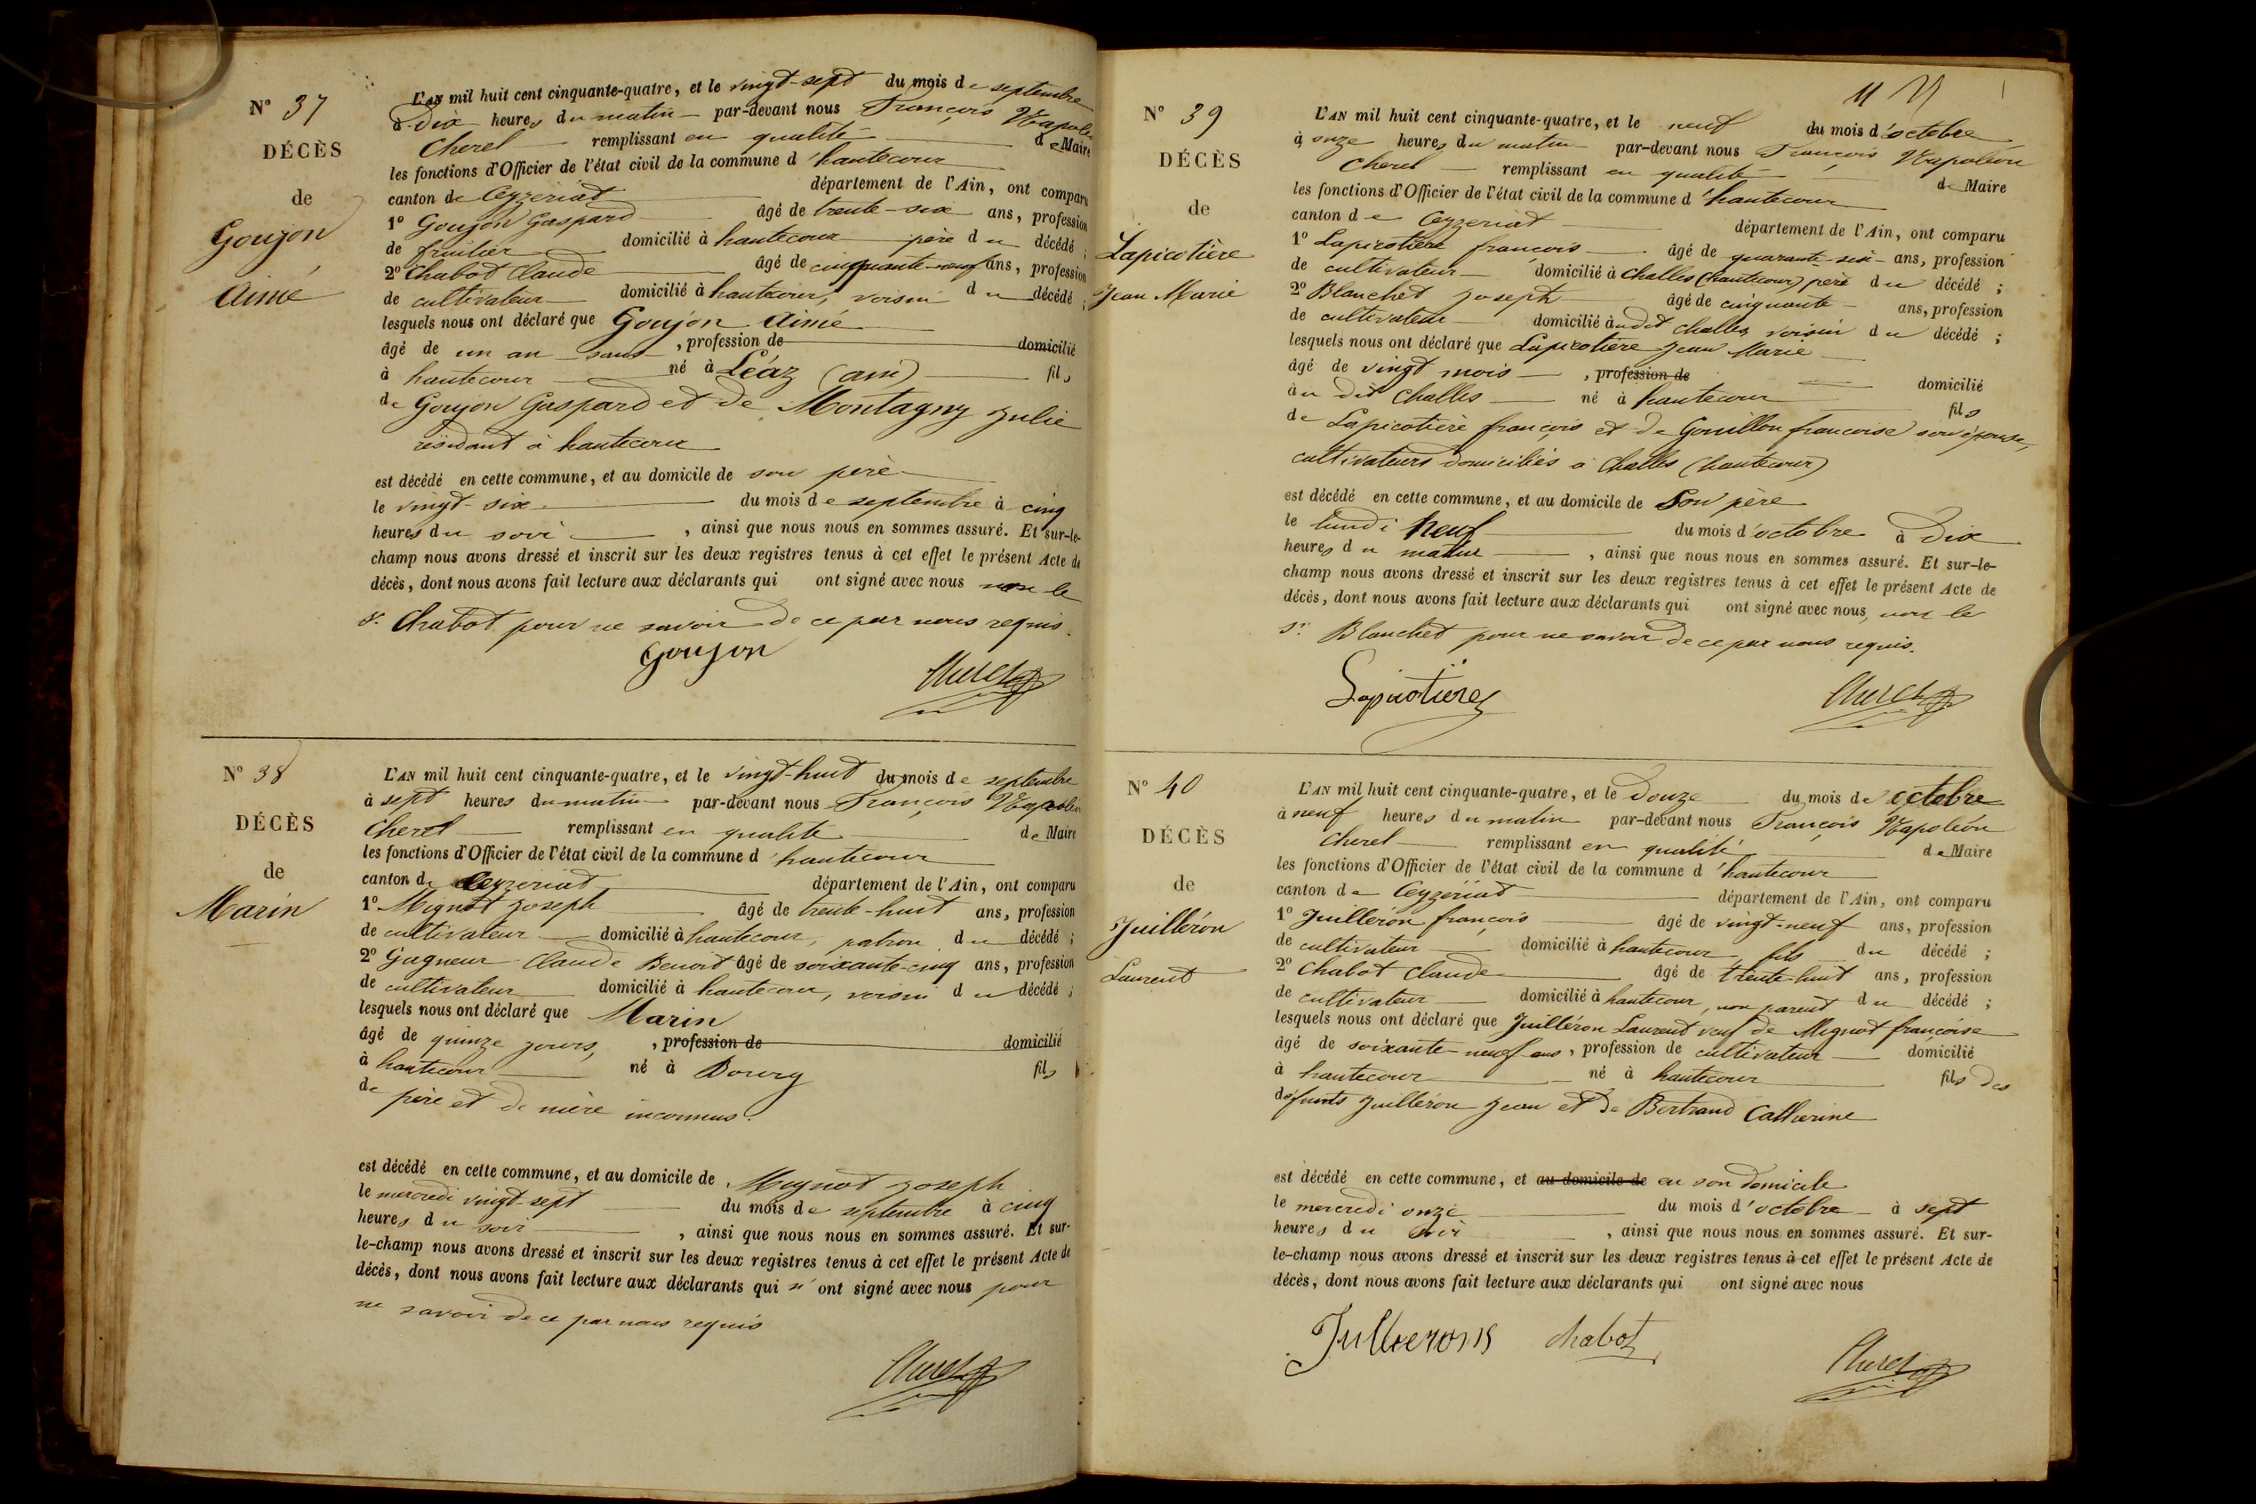 N° 37
DÉCÈS
de
Goujon
Aimé
L'AN mil huit cent cinquante-quatre, et le vingt-sept du mois de septembre
à dix heures du matin par-devant nous François Napoléon
Cherel remplissant en qualité de Maire
les fonctions d'Officier de l'état civil de la commune d'hautecour
canton de Ceyzeriat département de l'Ain, ont comparu
1° Goujon Gaspard âgé de trente-six ans, profession
de fruitier domicilié à hautecour père du décédé ;
2° Chabot Claude âgé de cinquante-neuf ans, profession
de cultivateur domicilié à hautecour, voisin du décédé ;
lesquels nous ont déclaré que Goujon Aimé
âgé de un an sans , profession de domicilié
à hautecour né à Léaz (ain) fils
de Goujon Gaspard et de Montagny Julie
résidant à hautecour
est décédé en cette commune, et au domicile de son père
le vingt-six du mois de septembre à cinq
heures du soir , ainsi que nous nous en sommes assuré. Et sur-le-
champ nous avons dressé et inscrit sur les deux registres tenus à cet effet le présent Acte de
décès, dont nous avons fait lecture aux déclarants qui ont signé avec nous non le
sr. Chabot pour ne savoir de ce par nous requis.
Goujon
Cherel
N° 38
DÉCÈS
de
Marin
L'AN mil huit cent cinquante-quatre, et le vingt-huit du mois de septembre
à sept heures du matin par-devant nous François Napoléon
Cherel remplissant en qualité de Maire
les fonctions d'Officier de l'état civil de la commune d'hautecour
canton de Ceyzeriat département de l'Ain, ont comparu
1° Mignot Joseph âgé de trente-huit ans, profession
de cultivateur domicilié à hautecour, patron du décédé ;
2° Gagneur Claude Benoit âgé de soixante-cinq ans, profession
de cultivateur domicilié à hautecour, voisin du décédé ;
lesquels nous ont déclaré que Marin
âgé de quinze jours, , profession de domicilié
à hautecour né à Bourg fils
de père et de mère inconnus.
est décédé en cette commune, et au domicile de Mignot Joseph
le mercredi vingt-sept du mois de septembre à cinq
heures du soir , ainsi que nous nous en sommes assuré. Et sur-
le-champ nous avons dressé et inscrit sur les deux registres tenus à cet effet le présent Acte de
décès, dont nous avons fait lecture aux déclarants qui n'ont signé avec nous pour
ne savoir de ce par nous requis
Cherel
11
N° 39
DÉCÈS
de
Lapicotière
Jean Marie
L'AN mil huit cent cinquante-quatre, et le neuf du mois d'octobre
à onze heures du matin par-devant nous François Napoléon
Cherel remplissant en qualité de Maire
les fonctions d'Officier de l'état civil de la commune d'hautecour
canton de Ceyzeriat département de l'Ain, ont comparu
1° Lapicotière françois âgé de quarante-six ans, profession
de cultivateur domicilié à Challes (hautecour) père du décédé ;
2° Blanchet Joseph âgé de cinquante ans, profession
de cultivateur domicilié audit Challes voisin du décédé ;
lesquels nous ont déclaré que Lapicotière Jean Marie
âgé de vingt mois , profession de domicilié
au dit Challes né à hautecour fils
de Lapicotière françois et de Gouillon francoise son épouse,
cultivateurs domiciliés à Challes (hautecour)
est décédé en cette commune, et au domicile de Son père
le lundi neuf du mois d'octobre à dix
heures du matin , ainsi que nous nous en sommes assuré. Et sur-le-
champ nous avons dressé et inscrit sur les deux registres tenus à cet effet le présent Acte de
décès, dont nous avons fait lecture aux déclarants qui ont signé avec nous, non le
sr. Blanchet pour ne savoir de ce par nous requis.
Lapicotière
Cherel
N° 40
DÉCÈS
de
Juilléron
Laurent
L'AN mil huit cent cinquante-quatre, et le douze du mois de octobre
à neuf heures du matin par-devant nous François Napoléon
Cherel remplissant en qualité de Maire
les fonctions d'Officier de l'état civil de la commune d'hautecour
canton de Ceyzériat département de l'Ain, ont comparu
1° Juilléron françois âgé de vingt-neuf ans, profession
de cultivateur domicilié à hautecour fils du décédé ;
2° Chabot Claude âgé de trente-huit ans, profession
de cultivateur domicilié à hautecour, non parent du décédé ;
lesquels nous ont déclaré que Juilléron Laurent veuf de Mignot françoise
âgé de soixante-neuf ans, profession de cultivateur domicilié
à hautecour né à hautecour fils des
défunts Juilléron Jean et de Bertrand Catherine
est décédé en cette commune, et au domicile de en son domicile
le mercredi onze du mois d'octobre à sept
heures du soir , ainsi que nous nous en sommes assuré. Et sur-
le-champ nous avons dressé et inscrit sur les deux registres tenus à cet effet le présent Acte de
décès, dont nous avons fait lecture aux déclarants qui ont signé avec nous
Chabot
Cherel